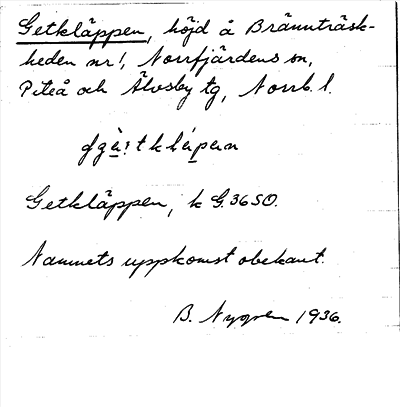 Getkläppen, höjd å Brännträsk-
heden nr 1, Norrfjärdens sn,
Piteå och Älvsby tg, Norrb. l.
Getkläppen, k G. 3650.
Namnets uppkomst obekant.
B. Nygren 1936.